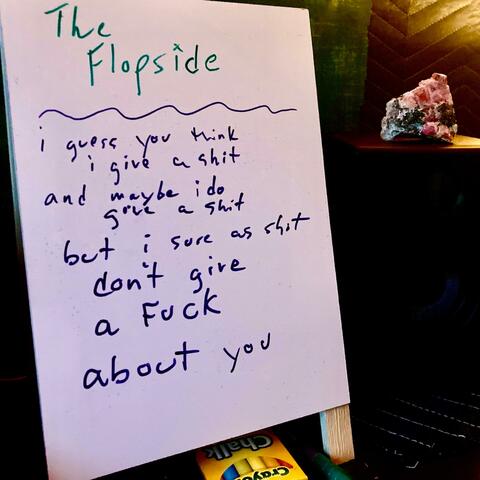 The
Flopside
i guess you think
i give a shit
and maybe i do
give a shit
but i sure as shit
don't give
a Fuck
about you
Chalk
Crayo